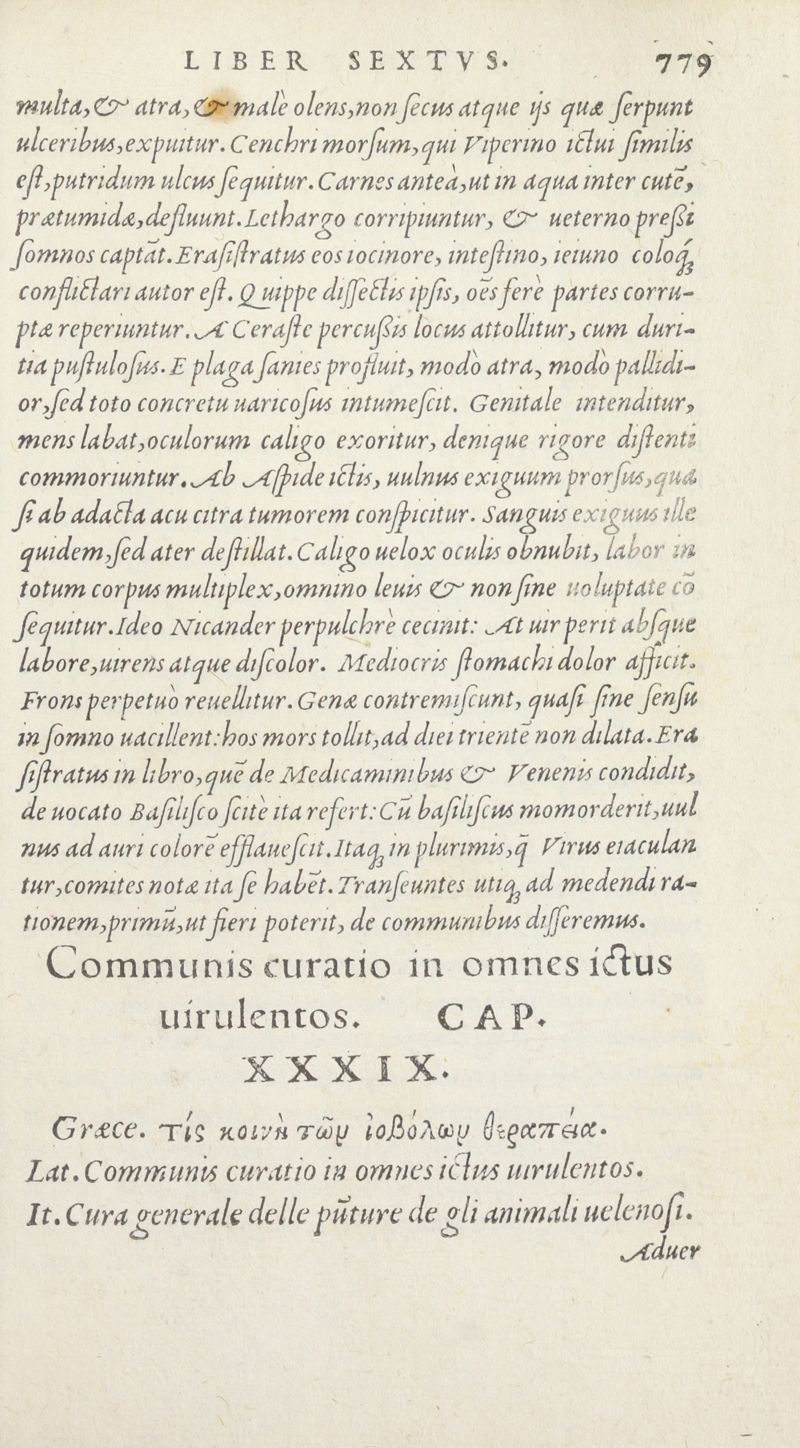 LIBER SEXTVS. 779
multa, & atra, & male olens, non ſecus atque ijs quæ ſerpunt
ulceribus, expuitur. Cenchri morſum, qui Viperino ictui ſimilis
eſt, putridum ulcus ſequitur. Carnes anteà, ut in aqua inter cutē,
prætumidæ, defluunt. Lethargo corripiuntur, & ueterno preſsi
ſomnos captāt. Eraſiſtratus eos iocinore, inteſtino, ieiuno coloq́
conflictari autor eſt. Quippe diſſectis ipſis, oēs ferè partes corru-
ptæ reperiuntur. A Ceraſte percuſsis locus attollitur, cum duri-
tia puſtuloſus. E plaga ſanies profluit, modò atra, modò pallidi-
or, ſed toto concretu uaricoſus intumeſcit. Genitale intenditur,
mens labat, oculorum caligo exoritur, denique rigore diſtenti
commoriuntur. Ab Aſpide ictis, uulnus exiguum prorſus, qua
ſi ab adacta acu citra tumorem conſpicitur. Sanguis exiguus ille
quidem, ſed ater deſtillat. Caligo uelox oculis obnubit, labor in
totum corpus multiplex, omnino leuis & non ſine uoluptate cō
ſequitur. Ideo Nicander perpulchrè cecinit: At uir perit abſque
labore, uirens atque diſcolor. Mediocris ſtomachi dolor afficit.
Frons perpetuò reuellitur. Genæ contremiſcunt, quaſi ſine ſenſu
in ſomno uacillent: hos mors tollit, ad diei trientē non dilata. Era
ſiſtratus in libro, quē de Medicaminibus & Venenis condidit,
de uocato Baſiliſco ſcitè ita refert: Cū baſiliſcus momorderit, uul
nus ad auri colorē efflaueſcit. Itaq; in plurimis, q̄ Virus eiaculan
tur, comites notæ ita ſe habēt. Tranſeuntes utiq; ad medendi ra-
tionem, primū, ut fieri poterit, de communibus diſſeremus.
Communis curatio in omnes ictus
uirulentos. CAP.
XXXIX.
Græce. Τίς κοινὴ τῶν ἰοβόλων θεραπεία.
Lat. Communis curatio in omnes ictus uirulentos.
It. Cura generale delle pūture de gli animali uelenoſi.
Aduer